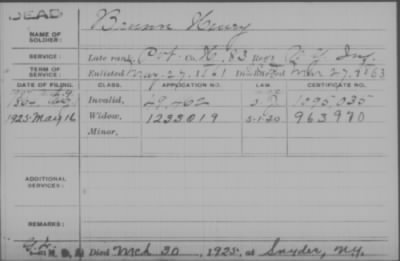 DEAD
NAME OF SOLDIER: Brunn Henry
SERVICE: Late rank, Pvt. Co. H, 83 Reg't N.Y. Inf.
TERM OF SERVICE: Enlisted May 27, 1861 Discharged Mar 27, 1863
DATE OF FILING. CLASS. APPLICATION NO. LAW. CERTIFICATE NO.
Invalid, 1095035
1925-May 16 Widow, 1233019 5-1-20 963970
Minor,
ADDITIONAL SERVICES:
REMARKS:
Died Mch 30, 1925, at Snyder, N.Y.